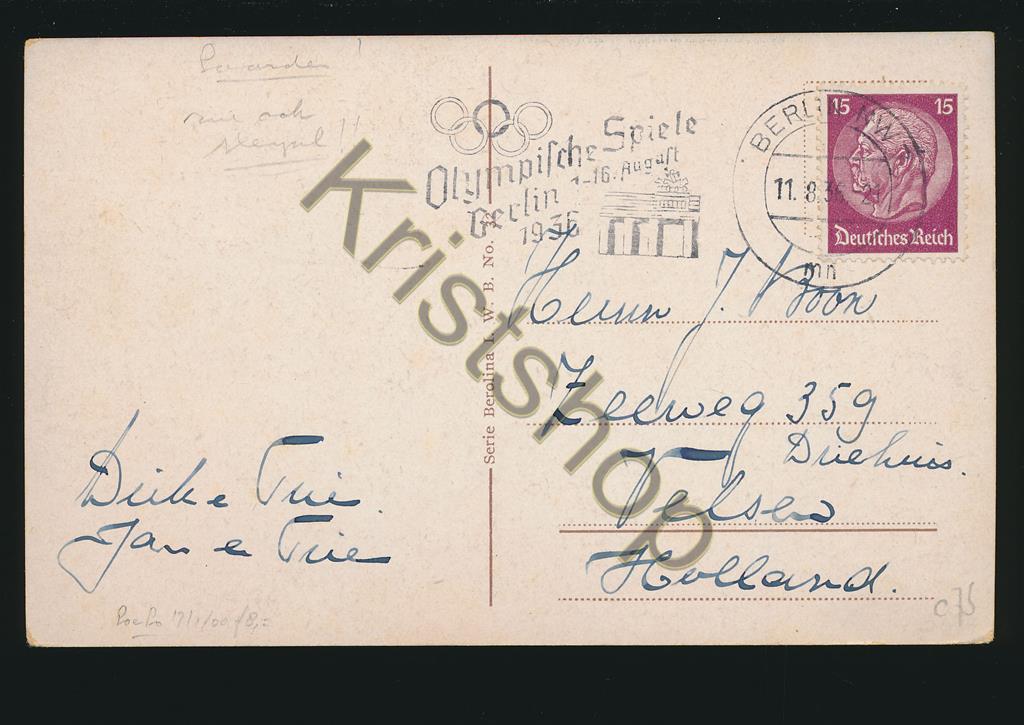 Bewaarden!
!!
Olympische Spiele
Berlin 1-16. August
1936
BERLIN NW
11.8.36
mn
15 15
Deutsches Reich
Serie Berolina I. W. B. No. 32
Kristshop
Herrn J. Boon
Zeeweg 359
Driehuis.
Velsen
Holland.
Dirk e Trie
Jan en Trie
17/1/00 f 8,=
C75